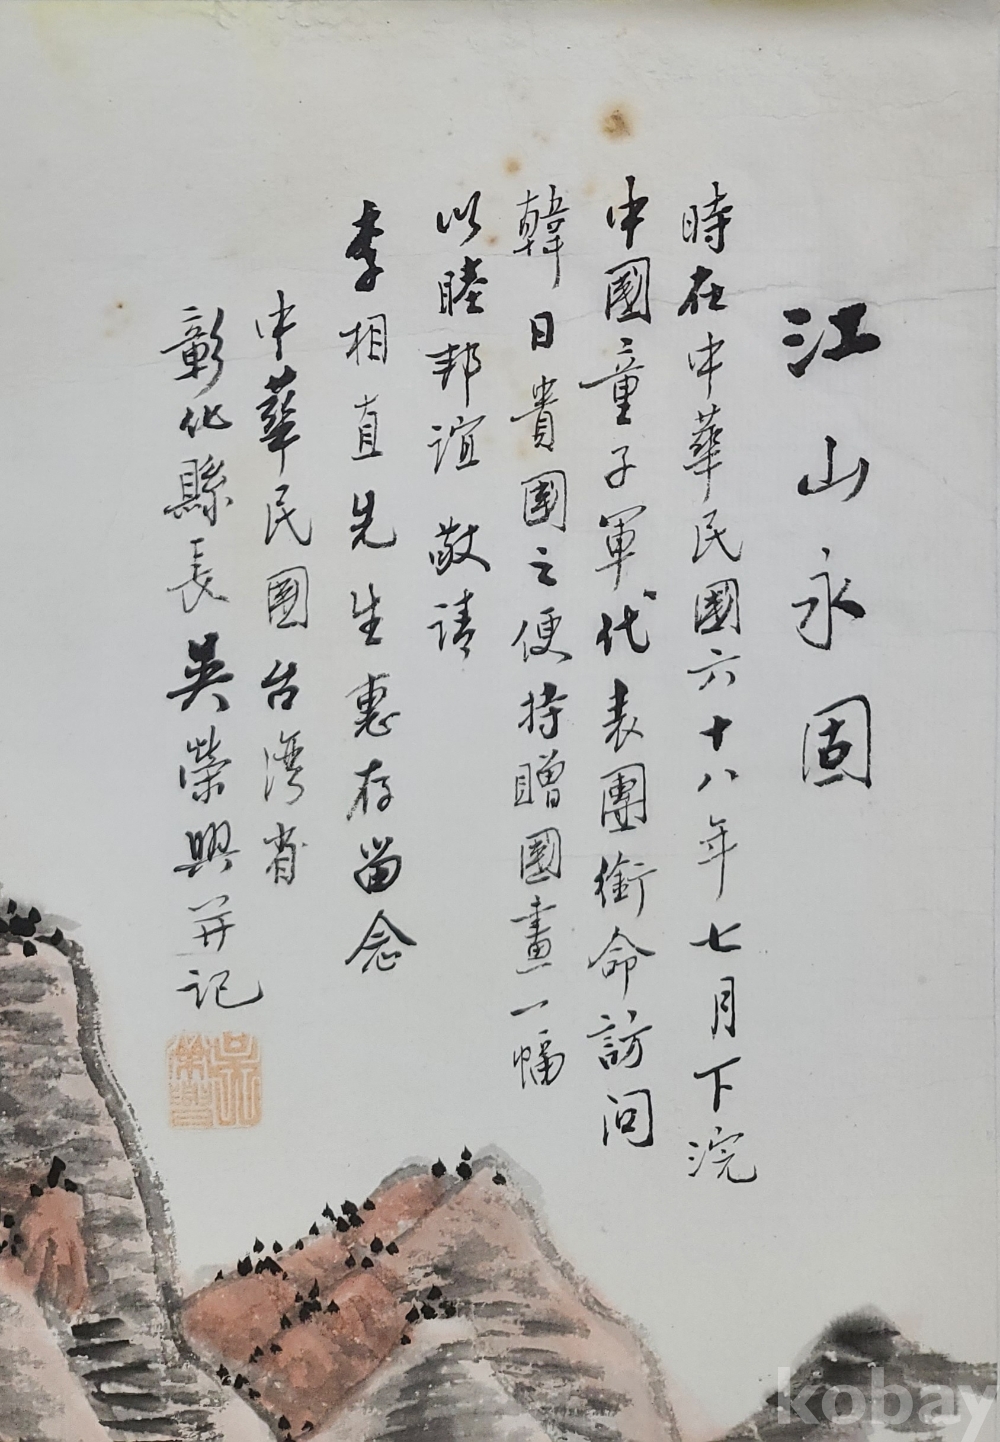 江山永固
時在中華民國六十八年七月下浣
中國童子軍代表團銜命訪问
韓日貴國之便持贈國畫一幅
以睦邦誼敬请
李相直先生惠存留念
中華民國台湾省
彰化縣長吴榮興并记
吳榮興
kobay